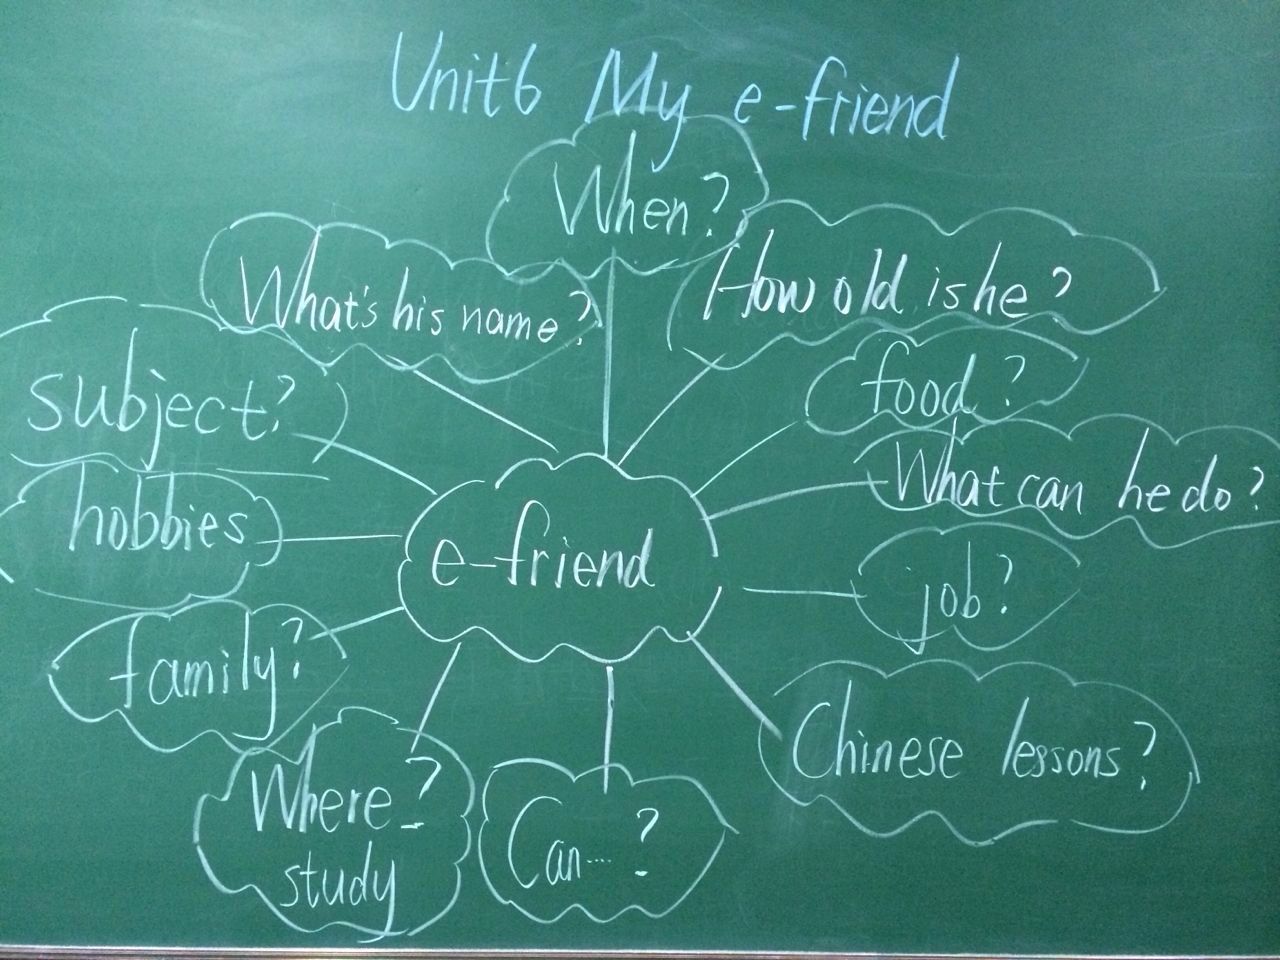 Unit6 My e-friend
When?
What's his name?
How old is he?
subject?
food?
hobbies
What can he do?
e-friend
job?
family?
Chinese lessons?
Where_?
study
Can....?